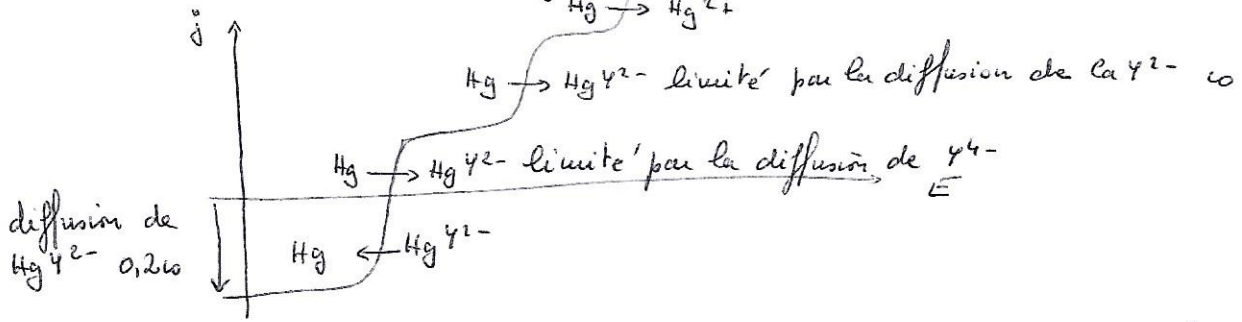 Hg → Hg2+
j
Hg → HgY2- limité par la diffusion de CaY2- c0
Hg → HgY2- limité par la diffusion de Y4-
E
diffusion de
HgY2- 0,2c0
Hg ← HgY2-